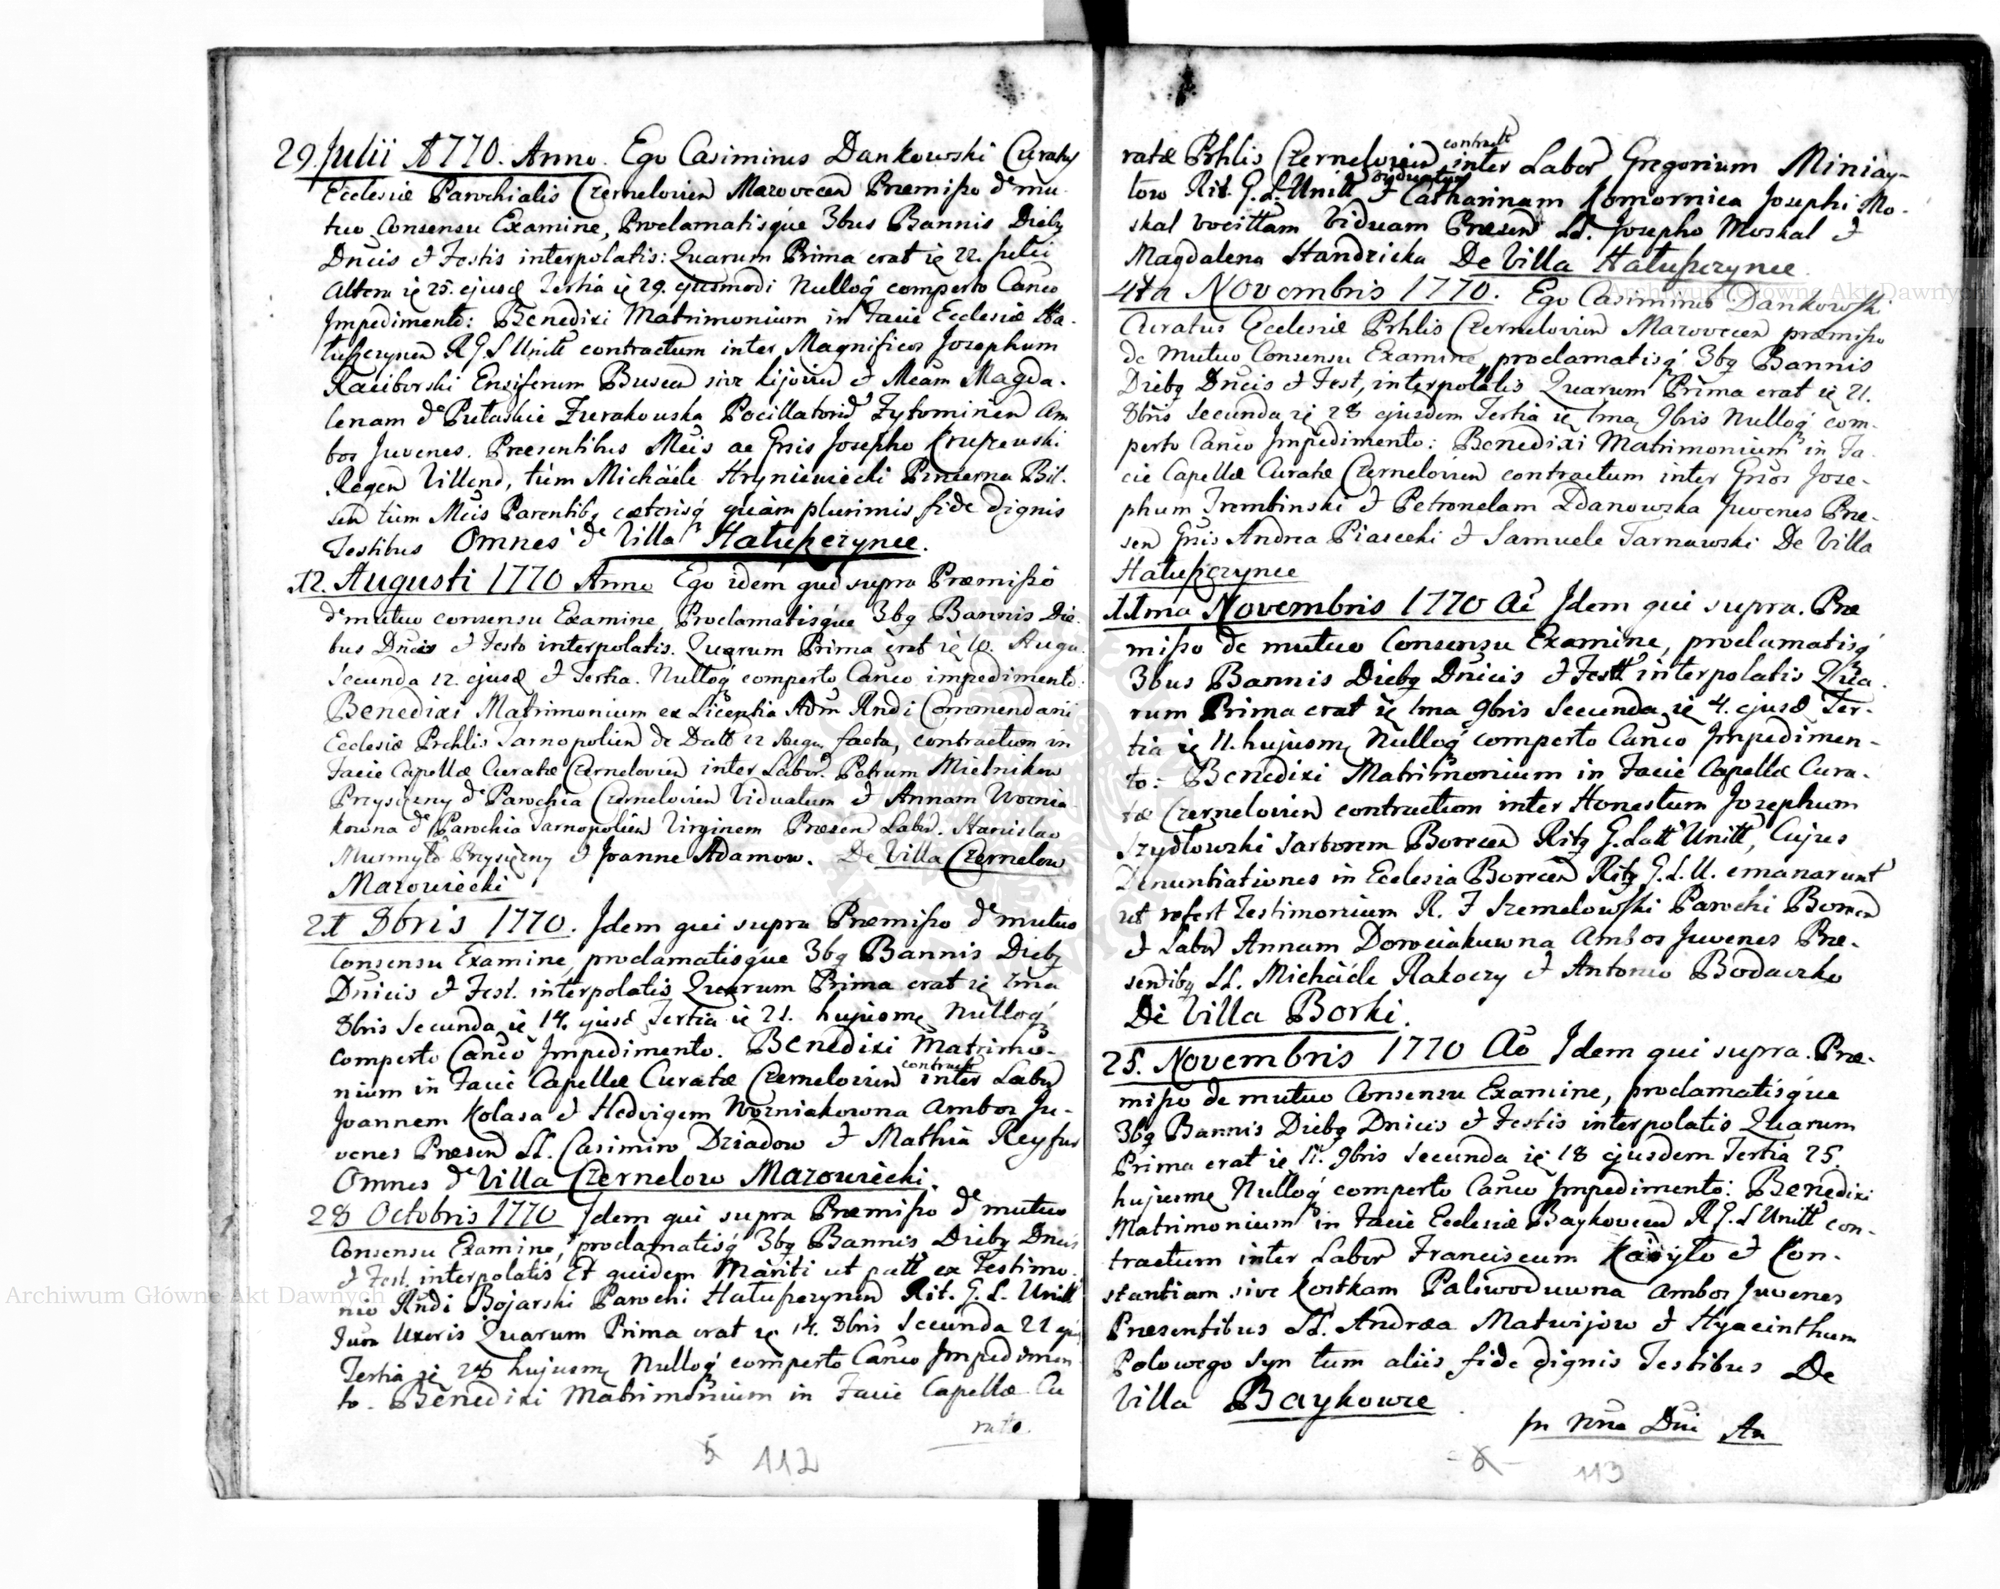 29. Julii A 1770. Anno. Ego Casimirus Dankowski Curatus
Ecclesiæ Parochialis Czernelovien Mazovecen Præmisso de mu-
tuo Consensu Examine, Proclamatisque 3bus Bannis Diebg
Dnicis et Festis interpolatis: Quarum Prima erat ię 22. Julii
Altera ię 25. ejusd Tertia ię 29. ejusmodi Nulloq comperto Canco
Impedimento: Benedixi Matrimonium in Facie Ecclesiæ Ha-
łuszczynen R G L Unitt contractum inter Magnificos Josephum
Raciborski Ensiferum Buscen sive Kijovien et Meam Magda-
lenam de Pułaskie Żurakowska Pocillatorid Żytominien Am
bos Juvenes. Præsentibus Meis ac Gnsis Josepho Kruszewski
Regen Villend, tum Michaele Hryniewiecki Pincerna Bil-
sen tum Meis Parentibg cæterisq quam plurimis fide dignis
Testibus Omnes de Villa Hałuszczynce.
12. Augusti 1770 Anno Ego idem qui supra Præmisso
de mutuo consensu Examine, Proclamatisque 3bg Bannis Die-
bus Dnicis et Festo interpolatis. Quarum Prima erat ię 10. Augu.
Secunda 12. ejusd et Tertia. Nulloq comperto Canco impedimento:
Benedixi Matrimonium ex Licentia Adm Rndi Commendarii
Ecclesiæ Prchlis Tarnopolien de Datt 12 Augu. facta, contractum in
Facie Capellæ Curatæ Czernelovien inter Labor. Petrum Mielnikow
Przysiężny de Parochia Czernelovien Viduatum et Annam Woznia
kowna de Parochia Tarnopolien Virginem Præsen Labor. Stanislao
Murmyło Przysiężny et Joanne Adamow. De Villa Czernelow
Mazowiecki
21 8bris 1770. Idem qui supra Præmisso de mutuo
Consensu Examine, proclamatisque 3bg Bannis Diebg
Dnicis et Fest. interpolatis Quarum Prima erat ię 7ma
8bris Secunda ię 14. ejusd Tertia ię 21. hujusmę Nulloq
comperto Canco Impedimento. Benedixi Matrimo-
nium in Facie Capellæ Curatæ Czernelovien contract inter Labor
Joannem Kolasa et Hedvigem Wozniakowna Ambos Ju-
venes Præsen LL. Casimiro Dziadow et Mathia Reyfur
Omnes de Villa Czernelow Mazowiecki.
28 Octobris 1770 Idem qui supra Præmisso de mutuo
Consensu Examine, proclamatisq 3bg Bannis Diebg Dnicis
et Fest. interpolatis Et quidem Mariti ut patt ex Testimo-
nio Rndi Bojarski Parochi Hałuszczynen Rit. G. L. Unitt
Uxoris Quarum Prima erat ię 14. 8bris Secunda 21
Tertia ię 28 hujusmę Nulloq comperto Canco Impedimen
to. Benedixi Matrimonium in Facie Capellæ Cu
ratæ
112
ratæ Prhlis Czernelovien contractt inter Labor Gregorium Miniay-
tow Rit. G. L. Unitt viduatum et Catharinam Komornica Josephi Mo-
skal vocittam Viduam Præsen LL. Josepho Moskal et
Magdalena Handzicka De Villa Hałuszczynce.
4ta Novembris 1770. Ego Casimirus Dankowski
Curatus Ecclesiæ Prhlis Czernelovien Mazovecen præmisso
de mutuo Consensu Examine, proclamatisq 3bg Bannis
Diebg Dnicis et Fest, interpolatis Quarum Prima erat ię 21.
8bris Secunda ię 28 ejusdem Tertia ię 1ma 9bris Nulloq com-
perto Canco Impedimento: Benedixi Matrimonium in Fa-
cie Capellæ Curatæ Czernelovien contractum inter Gnsos Jose-
phum Trembinski et Petronelam Zdanowska Juvenes Præ-
sen Gnsis Andrea Piasecki et Samuele Tarnawski De Villa
Hałuszczynce
11ma Novembris 1770 Ao Idem qui supra. Præ
misso de mutuo Consensu Examine, proclamatisq
3bus Bannis Diebg Dnicis et Festt interpolatis Qua-
rum Prima erat ię 1ma 9bris Secunda ię 4. ejusd Ter-
tia ię 11. hujusmę Nulloq comperto Canco Impedimen-
to: Benedixi Matrimonium in Facie Capellæ Cura-
tæ Czernelovien contractum inter Honestum Josephum
Szydłowski Sartorem Borecen Ritg G. Latt Unitt, Cujus
Denuntiationes in Ecclesia Borecen Ritg G. L. U. emanarunt
ut refert Testimonium R. F Szemelowski Parochi Borecen
et Labor Annam Dorociakuwna Ambos Juvenes Præ-
sentibg LL. Michaele Rakoczy et Antonio Bodaczko
De Villa Borki.
25. Novembris 1770 Ao Idem qui supra. Præ-
misso de mutuo Consensu Examine, proclamatisque
3bg Bannis Diebg Dnicis et Festis interpolatis Quarum
Prima erat ię 11. 9bris Secunda ię 18 ejusdem Tertia 25.
hujusmę Nulloq comperto Canco Impedimento: Benedixi
Matrimonium in Facie Ecclesiæ Baykovcen R G. L Unitt con-
tractum inter Labor Franciscum Kasyło et Con-
stantiam sive Kostkam Paliwoduwna ambos Juvenes
Præsentibus LL. Andræa Matwijow et Hyacinthum
Polowego Syn tum aliis fide dignis Testibus De
Villa Baykowce
In Nne Dni An
113
Archiwum Główne Akt Dawnych
Archiwum Główne Akt Dawnych